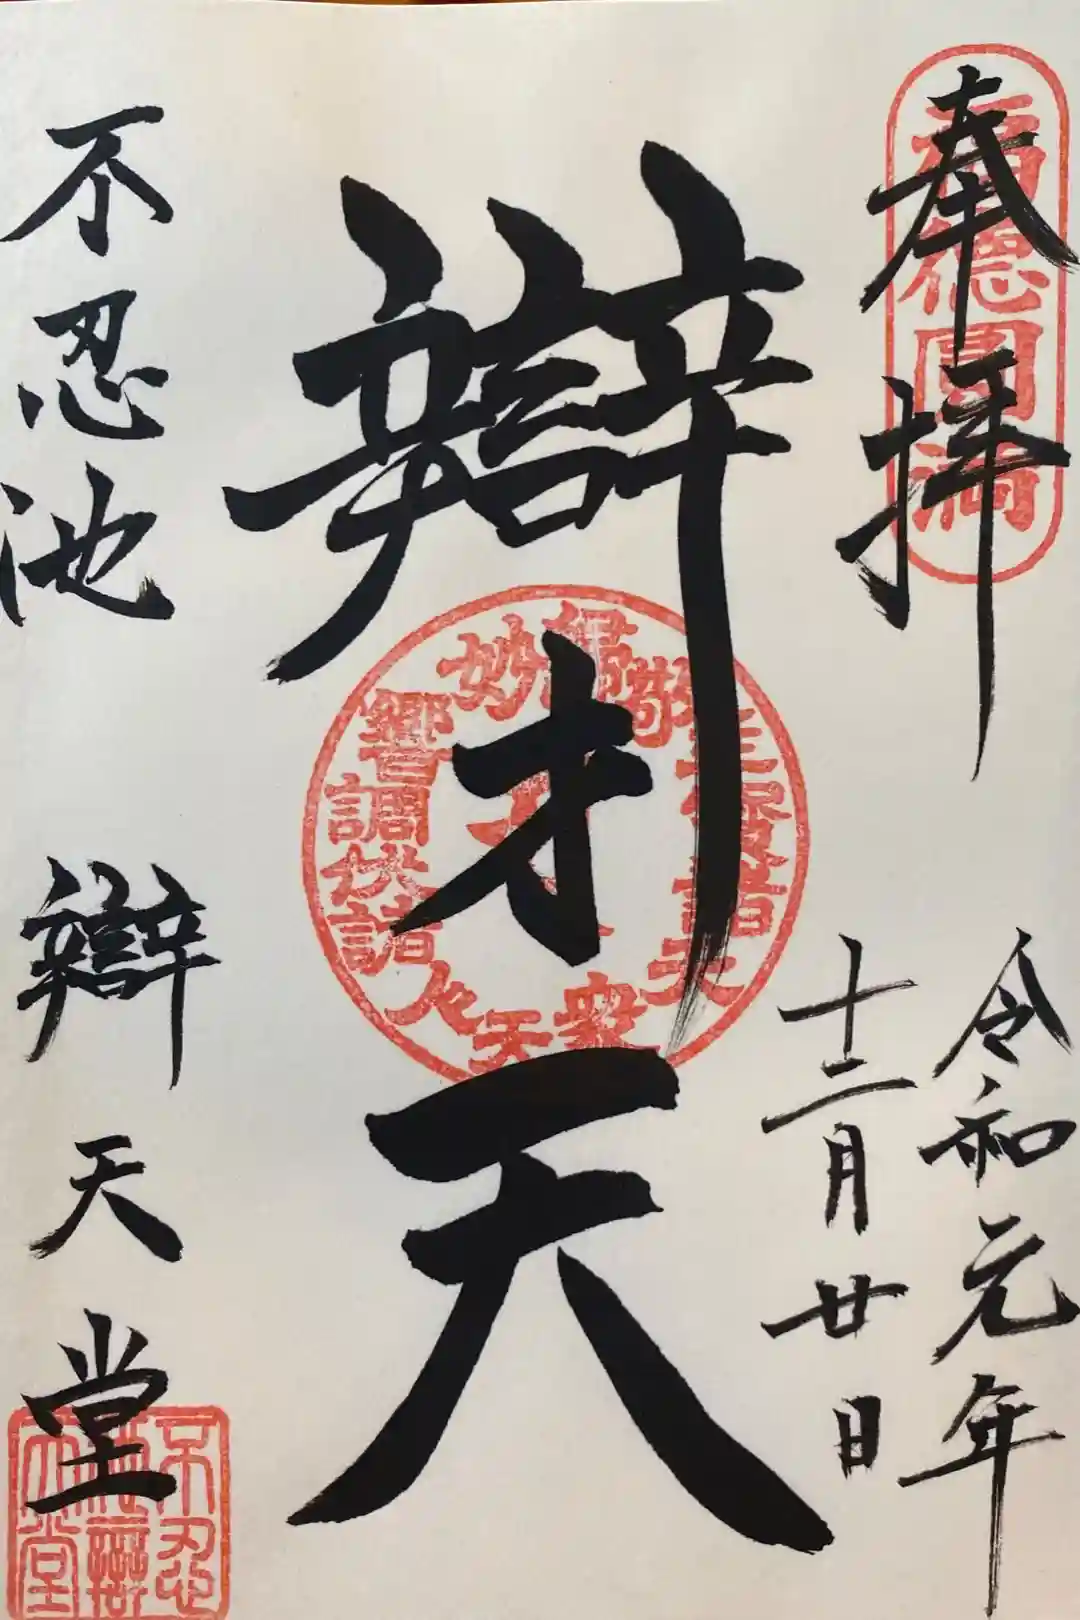 奉拝
福德圓満
令和元年
十二月廿日
辯才天
不忍池
辯天堂